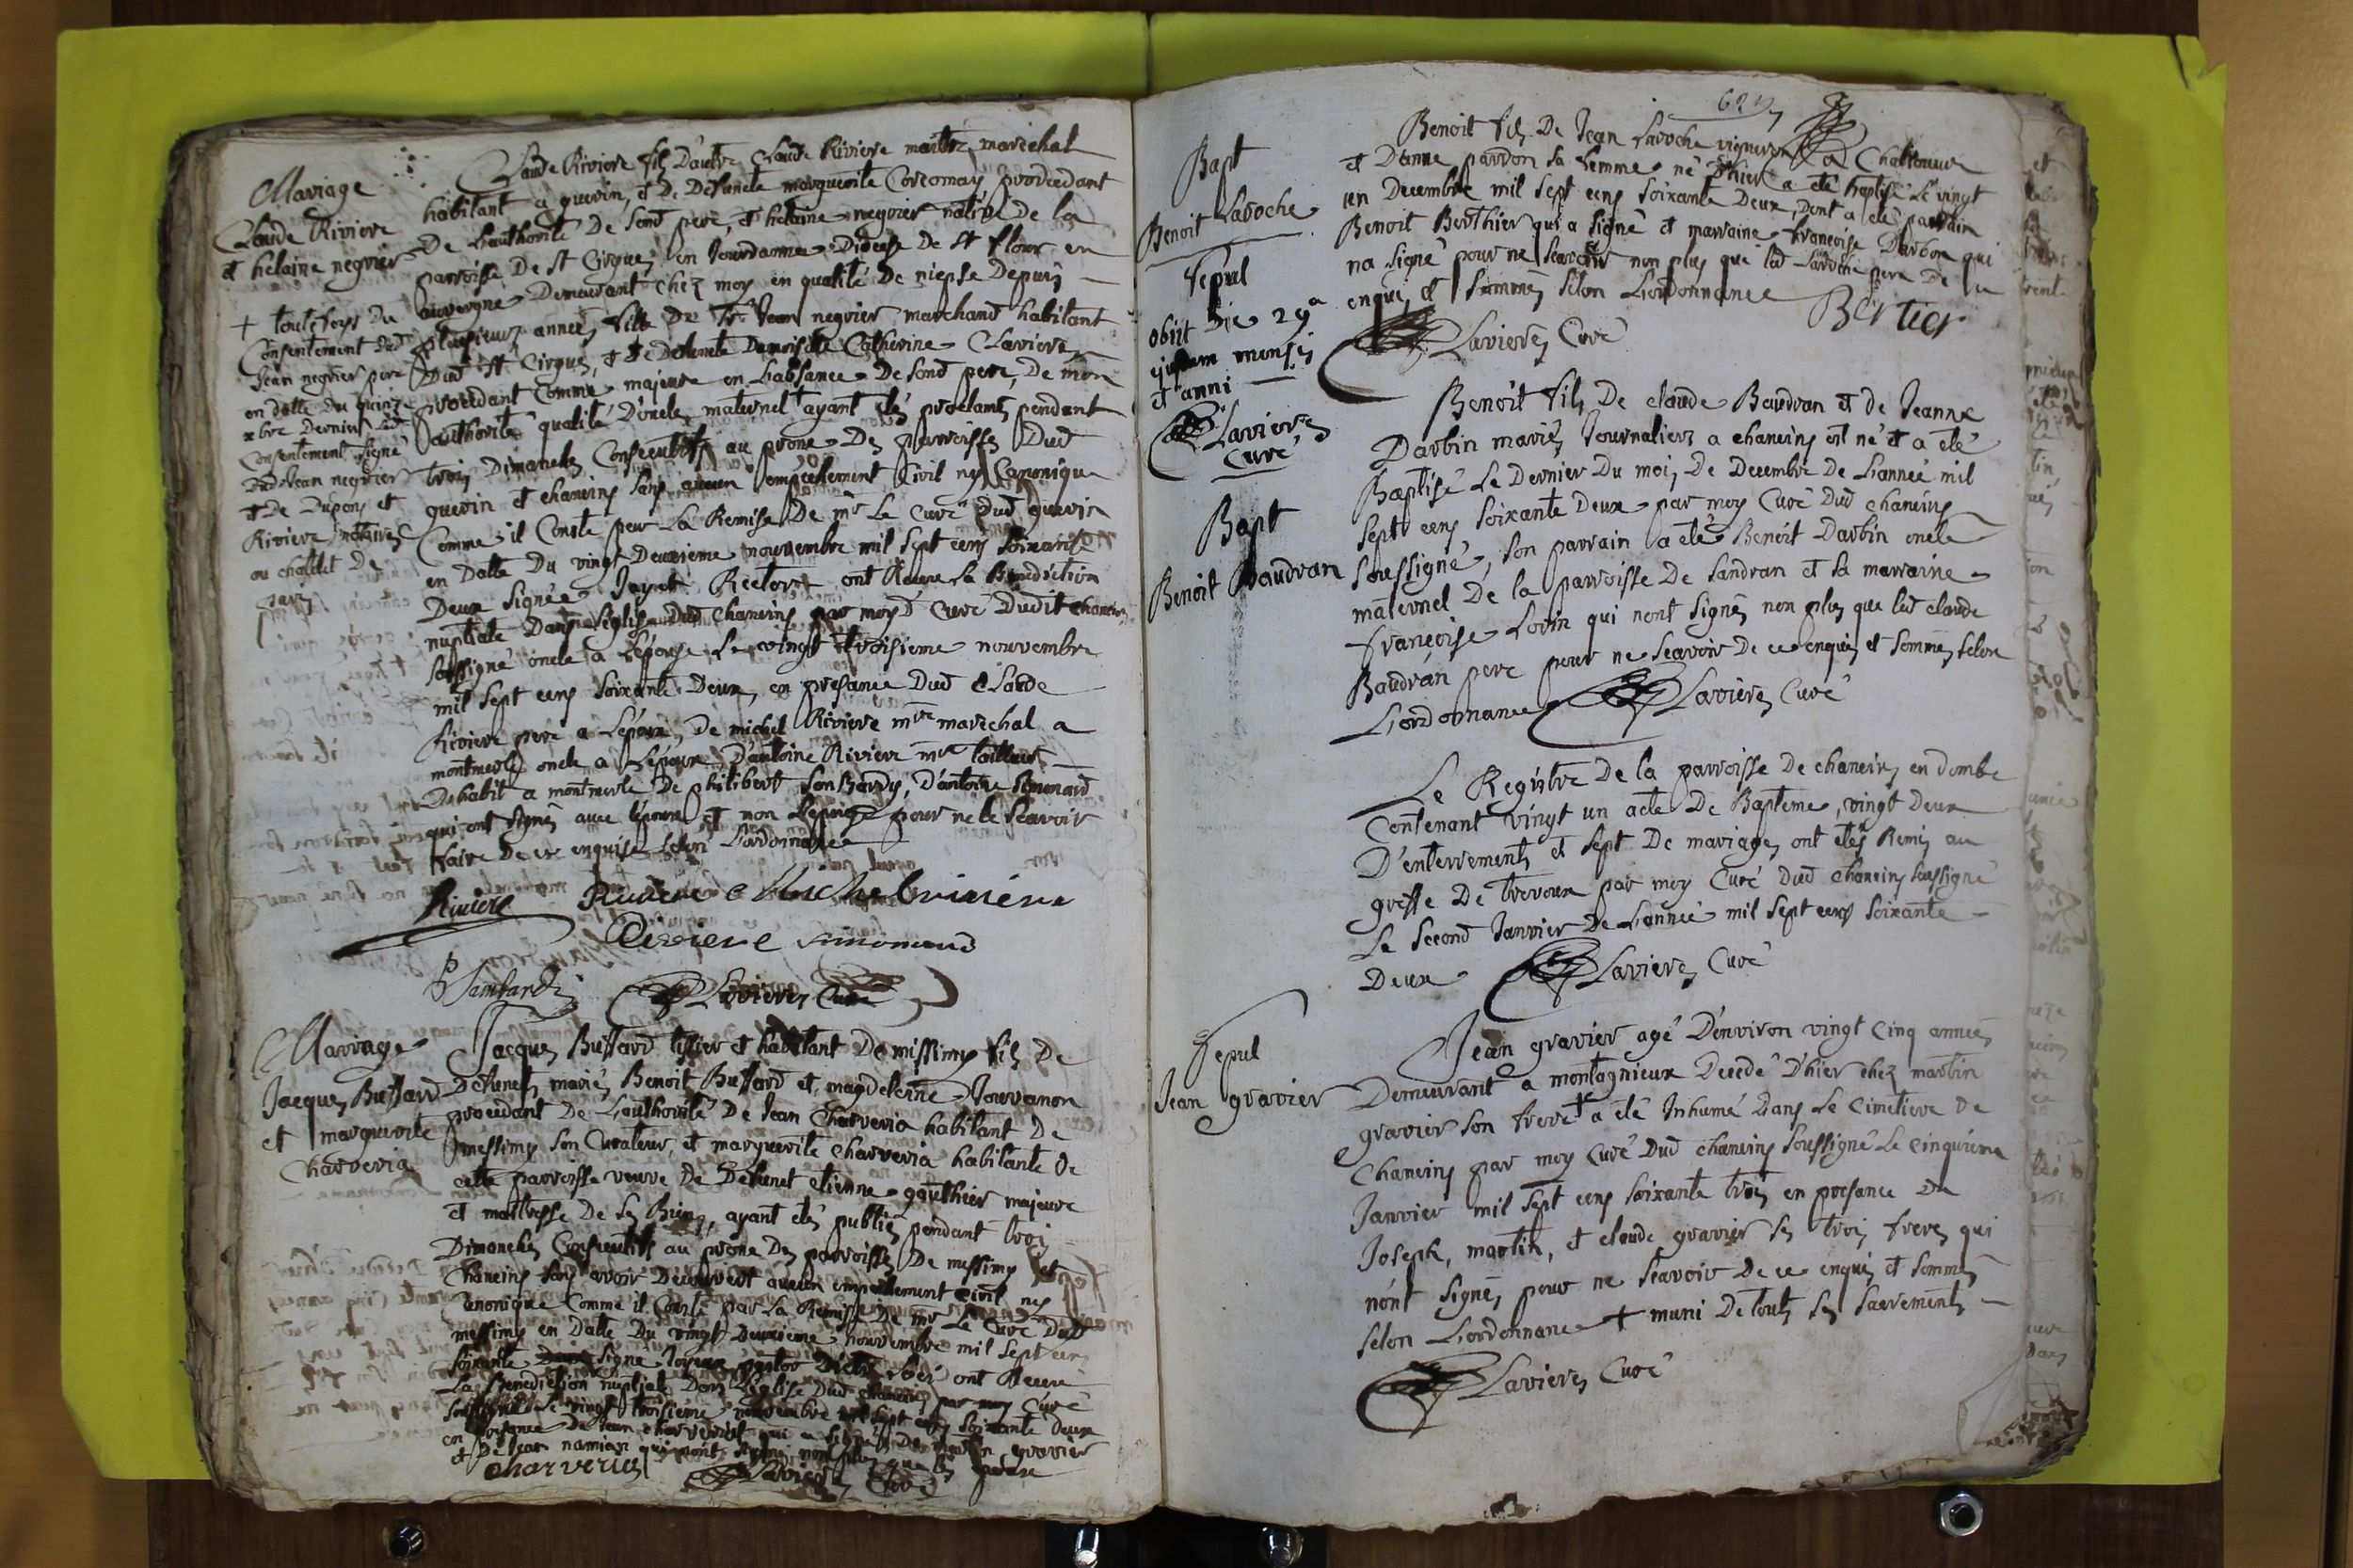 Mariage
Claude Riviere
et helaine negrier
+ toutefoys du
Consentement dud
Jean negrier pere
en datte du quinz
xbre dernier led
Consentement signé
dud Jean negrier
et De Dupony et
Riviere notaires
au chattlet de
paris
Claude Riviere fils D'autre Claude Riviere maitre marechal
habitant a guerin, et De Defuncte marguerite Corcomay, procedant
De Lauthorité De sond pere, et helaine negrier native De la
parroisse De St Cirgue, en Jourdanne Diocese De St flour en
auvergne Demeurant chez moy en qualité De niepse Depuis
plusieurs années, fille De Sr Jean negrier marchand habitant
Dud St Cirgues, et De defuncte Damoiselle Catherine Lavieres
procedant Comme majeure en Labsance De sond pere, De mon
authorité qualité D'oncle maternel, ayant étés proclamés pendant
trois Dimanches Consecutifs au prone Des parroisses Dud
guerin et chaneins sans aucun empechement Civil ny Canonique
Comme il Conste par La Remise De mr Le Curé dud guerin
en Datte Du vingt Deuxieme nouvembre mil sept cens soixante
Deux signée Jayet Rector, ont Receu La Benediction
nuptiale Dans L'église Dud Chaneins par moyd Curé Dudit chaneins
soussigné oncle a L'épouse Le vingt troisieme nouvembre
mil sept cens soixante Deux, en presance Dud Claude
Riviere pere a L'époux, De michel Riviere mtre marechal a
montmerle oncle a L'époux, D'antoine Riviere mtre tailleur
Dhabit a montmerle De philibert Sonbardy, D'antoine Simonard
qui ont signés avec l'époux et non L'epouse pour ne le scavoir
faire De ce enquise selon L'ordonnance
Riviere Riviere Michel riviere
Riviere simonard
P Sambardi Lavieres Curé
Mariage
Jacques Bussard
et marguerite
Charveria
Jacques Bussard tissier et habitant De missimy fils De
Defuncts mariés Benoit Bussard et magdeleine Jouvanon
procedant De Lauthorité De Jean Charveria habitant De
messimy son Curateur, et marguerite charveria habitante de
cette parroisse veuve De Defunct etienne gauthier majeure
et maitresse De ses Biens, ayant étés publiés pendant trois
Dimanches Consecutifs au prone Des parroisses De messimy et
Chaneins sans avoir Decouvert aucun empechement Civil ny
Canonique Comme il Conste par La Remisse De mr Le Curé Dud
messimy en Datte Du vingt Deuxieme nouvembre mil sept cens
soixante Deux signe ont Receu
La Benediction nuptiale Dans L'église Dud chaneins par moy Curé
soussigné Le vingt troisieme nouvembre mil sept cens soixante Deux
en presance De Jean charveriat qui a signé, De martin gravier
et De Jean namian qui n'ont signé non plus que les
charveria Lavieres Curé
629
Bapt
Benoit Laroche
Sepul
obiit Die 29a
ejusdem mensis
et anni
Lavieres
Curé
Benoit fils De Jean Laroche vigneron a Chaltoneux
et D'anne pardon sa femme né d'hier a été baptisé Le vingt
un Decembre mil sept cens soixante Deux, Dont a été parrain
Benoit Berthier qui a signé et marraine francoise Darbon qui
na signé pour ne scavoir non plus que led Laroche pere De ce
enquis et sommés selon L'ordonnance
Bertier
Lavieres Curé
Bapt
Benoit Baudran
Benoit fils De claude Baudran et de Jeanne
Darbin mariés Journaliers a chaneins est né et a été
Baptisé Le Dernier Du mois De Decembre De L'année mil
sept cens soixante Deux par moy Curé Dud chaneins
soussigné, son parrain a été Benoit Darbin oncle
maternel De la parroisse De Sandran et sa marraine
françoise Lorin qui nont signés non plus que led claude
Baudran pere pour ne scavoir De ce enquis et sommés selon
L'ordonnance Lavieres Curé
Le Registre De la parroisse De chaneins en dombe
Contenant vingt un acte De Bapteme, vingt Deux
D'enterrements et sept De mariages ont étés Remis au
greffe De trevoux par moy Curé Dud chaneins soussigné
Le second Janvier De L'année mil sept cens soixante
Deux Lavieres Curé
Sepul
Jean gravier
Jean gravier agé D'environ vingt cinq années
Demeurant a montagnieux Decedé D'hier chez martin
gravier son frere + a été Inhumé Dans Le Cimetiere De
Chaneins par moy Curé Dud chaneins soussigné Le cinquieme
Janvier mil sept cens soixante trois en presance De
Joseph, martin, et claude gravier ses trois freres qui
n'ont signés pour ne scavoir De ce enquis et sommés
selon L'ordonnance + muni De touts ses sacrements
Lavieres Curé